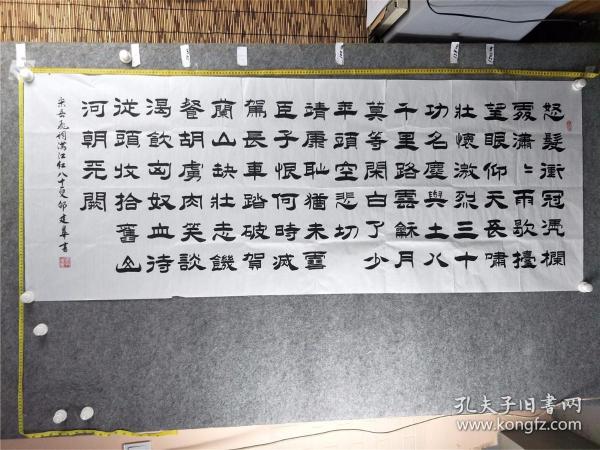 怒髮衝冠馮欄
處瀟〻雨歇擡
望眼仰天長嘯
壯懷激烈三十
功名塵與土八
千里路雲龢月
莫等閑白了少
年頭空悲切
靖康恥猶未雪
臣子恨何時滅
駕長車踏破賀
蘭山缺壯志饑
餐胡虜肉笑談
渴飲匈奴血待
從頭收拾舊山
河朝天闕
宋岳飛詞滿江红八十叟建華書
孔夫子旧书网
www.kongfz.com